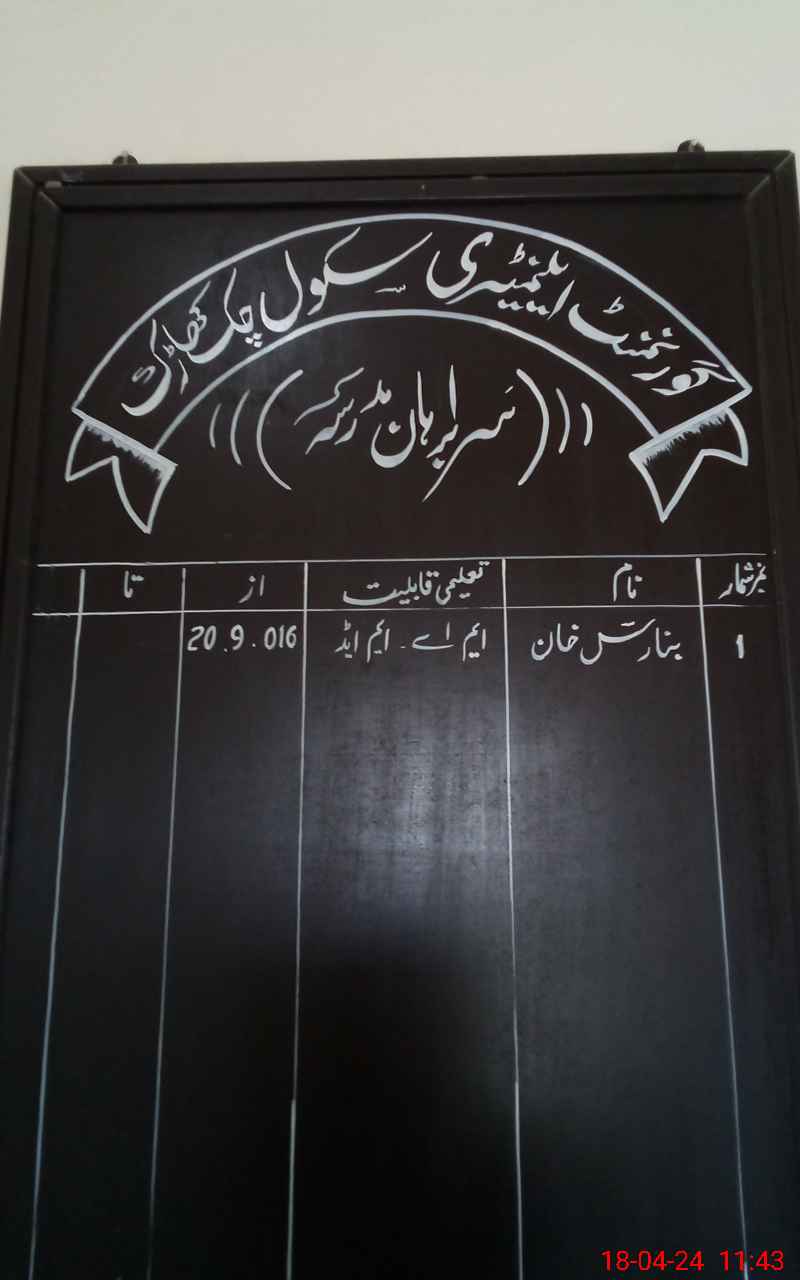 گورنمنٹ ایلیمنٹری سکول چک کھاڑک
(((سربراہان مدرسہ)))
نمبرشمار نام تعلیمی قابلیت از تا
1 بنارس خان ایم اے - ایم ایڈ 20.9.016
18-04-24 11:43